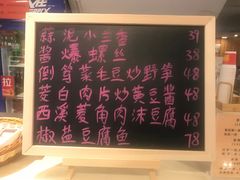 蒜泥小兰香 39
酱爆螺丝 38
倒笃菜毛豆炒野笋 48
茭白肉片炒黄豆酱 48
西溪菱角肉沫豆腐 48
椒盐豆腐鱼 78